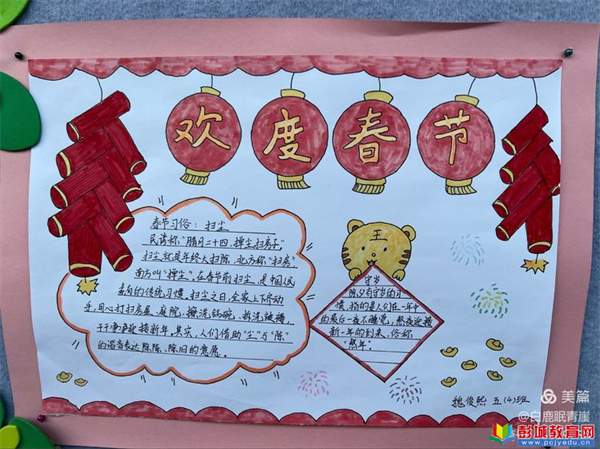 欢度春节
春节习俗：扫尘
民谚称"腊月二十四，掸尘扫房子"
扫尘就是年终大扫除，北方称"扫房"
南方叫"掸尘"，在春节前扫尘，是中国人
素有的传统习惯，扫尘之日，全家上下齐动
手，用心打扫房屋、庭院，擦洗锅碗、拆洗被褥，
干干净净迎接新年。其实，人们借助"尘"与"陈"
的谐音表达除陈、除旧的意愿。
守岁
除夕有守岁的习
惯，指的是人们在一年中
的最后一夜不睡觉，熬夜迎接
新一年的到来，俗称
"熬年"。
五(4)班
美篇
@白鹿眠青崖
彭城教育网
www.pcjyedu.cn